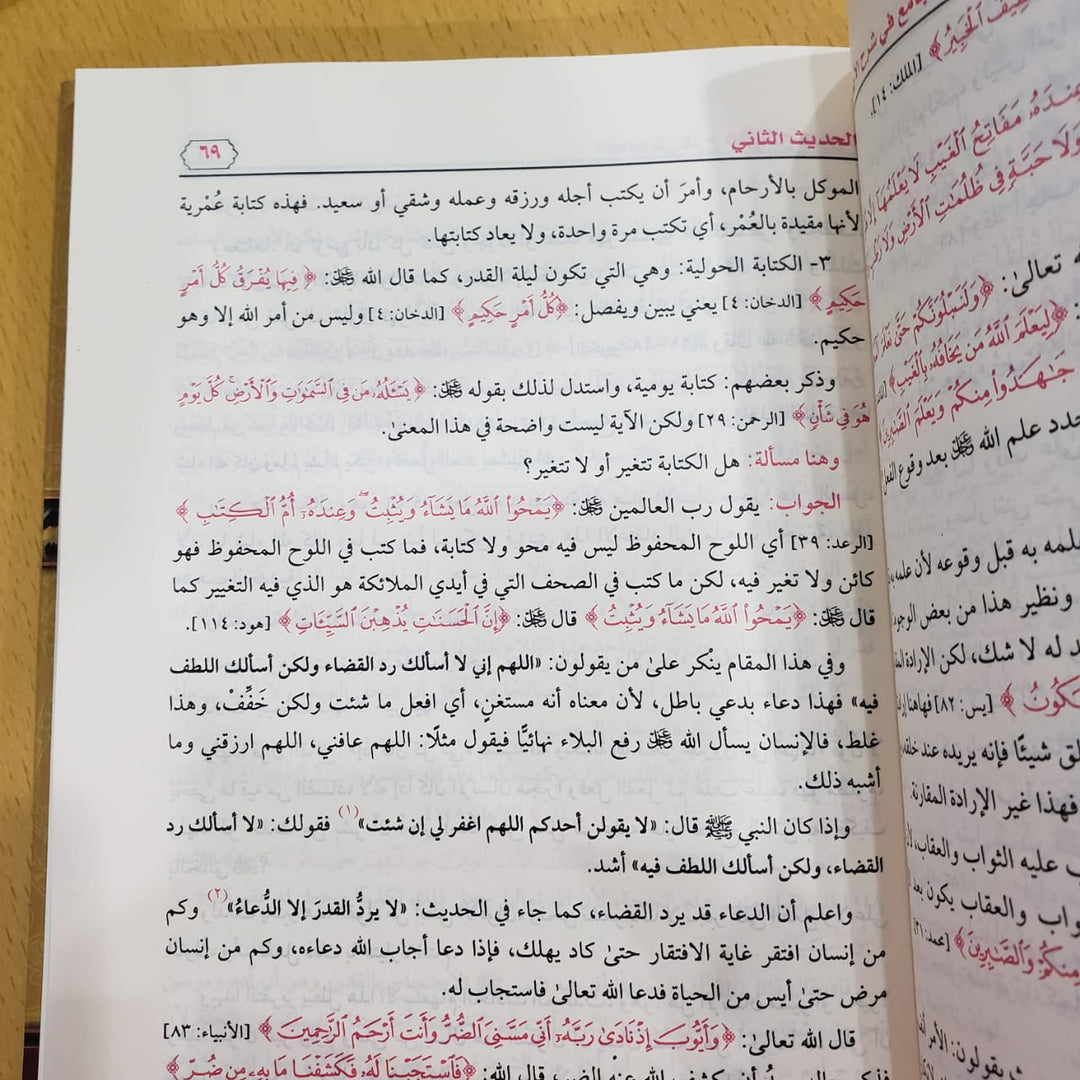 الحديث الثاني
٦٩
الموكل بالأرحام، وأمرَ أن يكتب أجله ورزقه وعمله وشقي أو سعيد. فهذه كتابة عُمْرية
لأنها مقيدة بالعُمْر، أي تكتب مرة واحدة، ولا يعاد كتابتها.
٣- الكتابة الحولية: وهي التي تكون ليلة القدر، كما قال الله ﷻ: ﴿ فِيهَا يُفْرَقُ كُلُّ أَمْرٍ
حَكِيمٍ ﴾ [الدخان: ٤] يعني يبين ويفصل: ﴿كُلُّ أَمْرٍ حَكِيمٍ ﴾ [الدخان: ٤] وليس من أمر الله إلا وهو
حكيم.
وذكر بعضهم: كتابة يومية، واستدل لذلك بقوله ﷻ: ﴿ يَسْـَٔلُهُۥ مَن فِى ٱلسَّمَٰوَٰتِ وَٱلْأَرْضِ ۚ كُلَّ يَوْمٍ
هُوَ فِى شَأْنٍ ﴾ [الرحمن: ٢٩] ولكن الآية ليست واضحة في هذا المعنىٰ.
وهنا مسألة: هل الكتابة تتغير أو لا تتغير؟
الجواب: يقول رب العالمين ﷻ: ﴿يَمْحُوا۟ ٱللَّهُ مَا يَشَآءُ وَيُثْبِتُ ۖ وَعِندَهُۥٓ أُمُّ ٱلْكِتَٰبِ ﴾
[الرعد: ٣٩] أي اللوح المحفوظ ليس فيه محو ولا كتابة، فما كتب في اللوح المحفوظ فهو
كائن ولا تغير فيه، لكن ما كتب في الصحف التي في أيدي الملائكة هو الذي فيه التغيير كما
قال ﷻ: ﴿يَمْحُوا۟ ٱللَّهُ مَا يَشَآءُ وَيُثْبِتُ ﴾ قال ﷻ: ﴿إِنَّ ٱلْحَسَنَٰتِ يُذْهِبْنَ ٱلسَّيِّـَٔاتِ ﴾ [هود: ١١٤].
وفي هذا المقام ينْكر علىٰ من يقولون: «اللهم إني لا أسألك رد القضاء ولكن أسألك اللطف
فيه» فهذا دعاء بدعي باطل، لأن معناه أنه مستغنٍ، أي افعل ما شئت ولكن خَفِّفْ، وهذا
غلط، فالإنسان يسأل الله ﷻ رفع البلاء نهائيًّا فيقول مثلًا: اللهم عافني، اللهم ارزقني وما
أشبه ذلك.
وإذا كان النبي ﷺ قال: «لا يقولن أحدكم اللهم اغفر لي إن شئت»(١) فقولك: «لا أسألك رد
القضاء، ولكن أسألك اللطف فيه» أشد.
واعلم أن الدعاء قد يرد القضاء، كما جاء في الحديث: «لا يردُّ القدرَ إلا الدُّعاءُ»(٢) وكم
من إنسان افتقر غاية الافتقار حتىٰ كاد يهلك، فإذا دعا أجاب الله دعاءه، وكم من إنسان
مرض حتىٰ أيس من الحياة فدعا الله تعالىٰ فاستجاب له.
قال الله تعالىٰ: ﴿وَأَيُّوبَ إِذْ نَادَىٰ رَبَّهُۥٓ أَنِّى مَسَّنِىَ ٱلضُّرُّ وَأَنتَ أَرْحَمُ ٱلرَّٰحِمِينَ ﴾ [الأنبياء: ٨٣]
الله عنه الضر، قال الله: ﴿فَٱسْتَجَبْنَا لَهُۥ فَكَشَفْنَا مَا بِهِۦ مِن ضُرٍّ ﴾
في شرح
ٱلْخَبِيرُ ﴾ [الملك: ١٤].
مَفَاتِحُ ٱلْغَيْبِ لَا يَعْلَمُهَآ
وَلَا حَبَّةٍ فِى ظُلُمَٰتِ ٱلْأَرْضِ وَلَا
تعالىٰ: ﴿وَلَنَبْلُوَنَّكُمْ حَتَّىٰ
﴿لِيَعْلَمَ ٱللَّهُ مَن يَخَافُهُۥ بِٱلْغَيْبِ﴾
جَٰهَدُوا۟ مِنكُمْ وَيَعْلَمَ ٱلصَّٰبِرِينَ
علم الله ﷻ بعد وقوع الفعل
به قبل وقوعه لأن علمه
ونظير هذا من بعض الوجوه
له لا شك، لكن الإرادة
﴾ [يس: ٨٢] فهاهنا
شيئًا فإنه يريده عند خلقه
فهذا غير الإرادة المقارنة
عليه الثواب والعقاب،
والعقاب يكون بعد
مِنكُمْ وَٱلصَّٰبِرِينَ﴾ [محمد: ٣١]
يقولون: الأمر